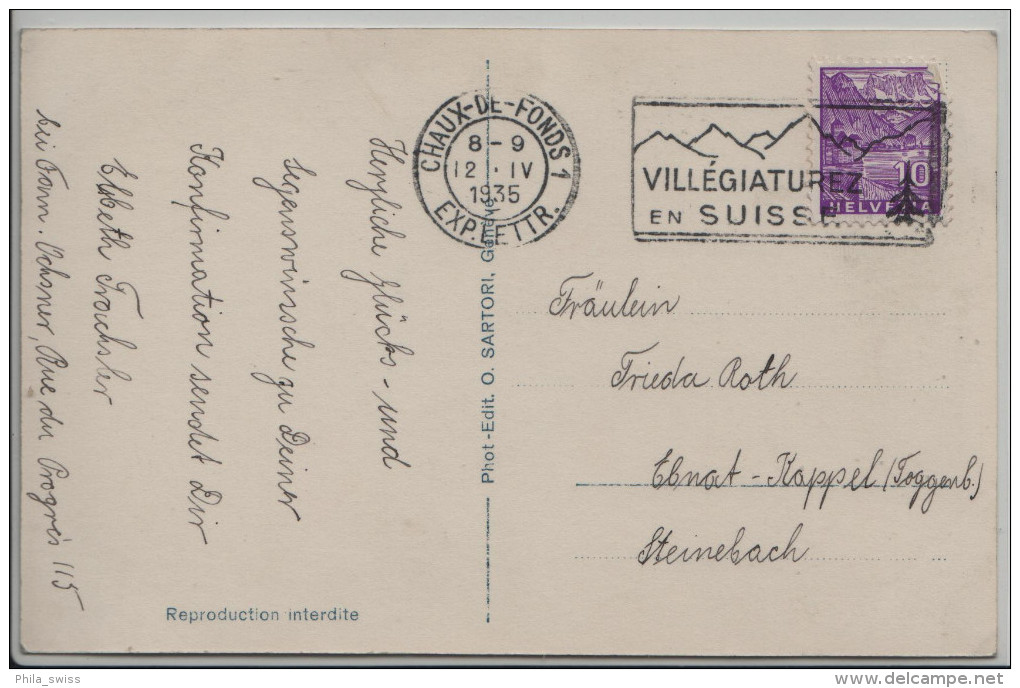 Herzliche Glücks- und
Segenwünsche zu Deiner
Konfirmation sendet Dir
Elsbeth Trachsler
bei Fam. Ochsner, Rue du Progrès 115
Reproduction interdite
Phot-Edit. O. SARTORI, Genève
CHAUX-DE-FONDS 1
8-9
12.IV
1935
EXP. LETTR.
VILLÉGIATUREZ
EN SUISSE
10
HELVETIA
Fräulein
Frieda Roth
Ebnat-Kappel (Toggenb.)
Steinebach
Phila_swiss
www.delcampe.net